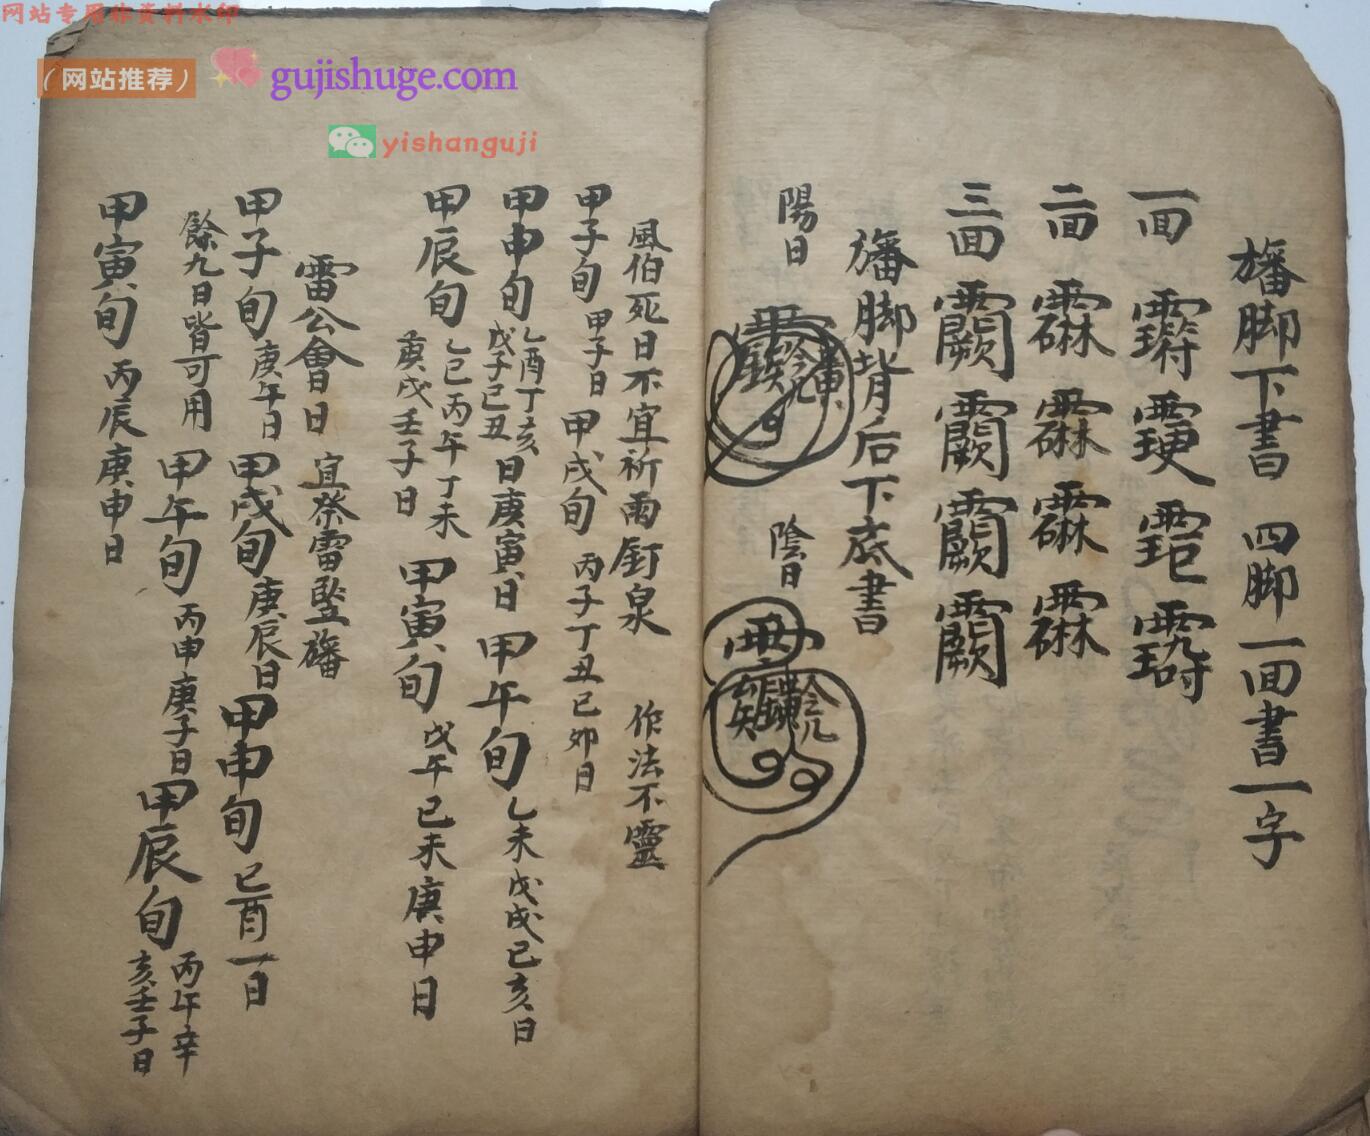 网站专用非资料水印
(网站推荐)
gujishuge.com
yishanguji
旛脚下書 四脚一面書一字
一面
二面
三面
旛脚背后下底書
陽日 陰日
風伯死日不宜祈雨釘泉 作法不靈
甲子旬 甲子日 甲戌旬 丙子丁丑己卯日
甲申旬 乙酉丁亥戊子己丑日庚寅日 甲午旬 乙未戊戌己亥日
甲辰旬 乙巳丙午丁未庚戌壬子日 甲寅旬 戊午己未庚申日
雷公會日 宜祭雷竪旛
甲子旬 庚午日 甲戌旬 庚辰日 甲申旬 己酉一日
餘九日皆可用 甲午旬 丙申庚子日 甲辰旬 丙午辛亥壬子日
甲寅旬 丙辰庚申日